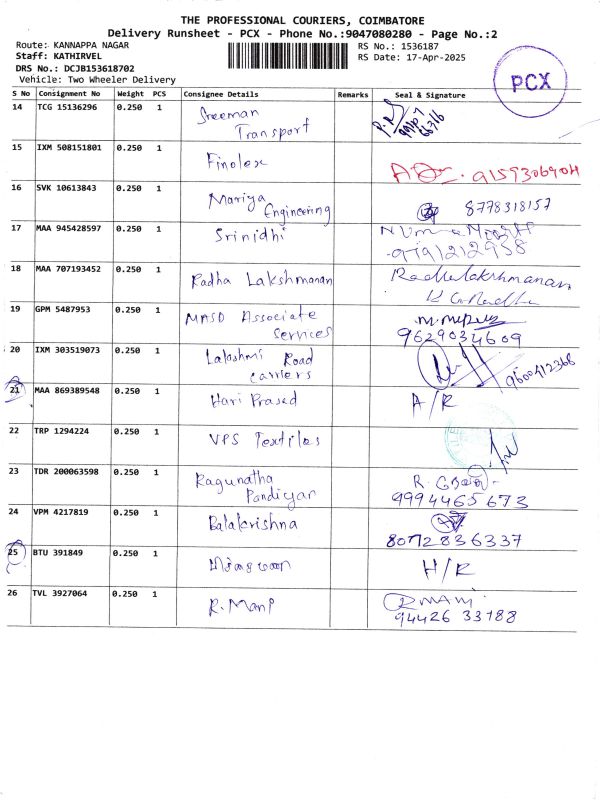 THE PROFESSIONAL COURIERS, COIMBATORE
Delivery Runsheet - PCX - Phone No.:9047080280 - Page No.:2
Route: KANNAPPA NAGAR
Staff: KATHIRVEL
DRS No.: DCJB153618702
Vehicle: Two Wheeler Delivery
RS No.: 1536187
RS Date: 17-Apr-2025
PCX
S No Consignment No Weight PCS Consignee Details Remarks Seal & Signature
14 TCG 15136296 0.250 1 Sreeman
Transport
15 IXM 508151801 0.250 1 Finolex 9159306904
16 SVK 10613843 0.250 1 Mariya
Engineering 8778318157
17 MAA 945428597 0.250 1 Srinidhi
9791212958
18 MAA 707193452 0.250 1 Radha Lakshmanan Radhalakshmanan
19 GPM 5487953 0.250 1 MASD Associate
Services 9629034609
20 IXM 303519073 0.250 1 Lakshmi Road
carriers 9600412368
21 MAA 869389548 0.250 1 Hari Prasad A/R
22 TRP 1294224 0.250 1 VPS Textiles
23 TDR 200063598 0.250 1 Ragunatha
Pandiyar 9994465673
24 VPM 4217819 0.250 1 Balakrishna
8072836337
25 BTU 391849 0.250 1 H/R
26 TVL 3927064 0.250 1 R.Mani R Mani
94426 33188